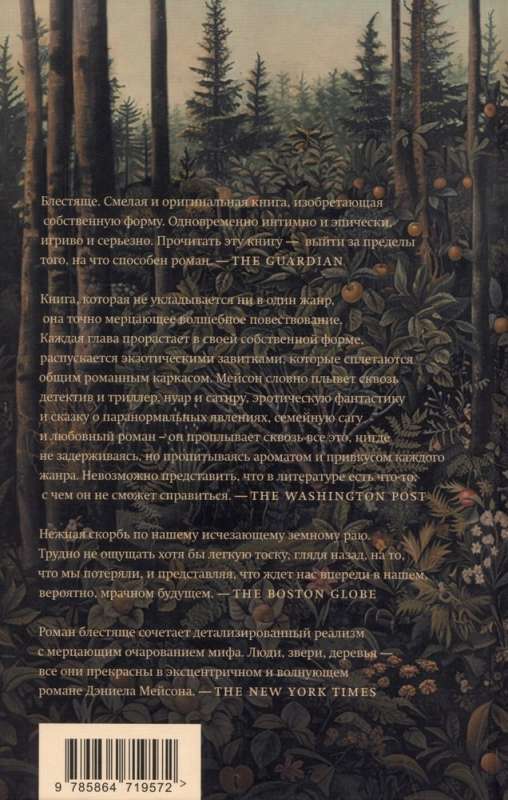 Блестяще. Смелая и оригинальная книга, изобретающая
собственную форму. Одновременно интимно и эпически,
игриво и серьезно. Прочитать эту книгу — выйти за пределы
того, на что способен роман. — THE GUARDIAN
Книга, которая не укладывается ни в один жанр,
она точно мерцающее волшебное повествование.
Каждая глава прорастает в своей собственной форме,
распускается экзотическими завитками, которые сплетаются
общим романным каркасом. Мейсон словно плывет сквозь
детектив и триллер, нуар и сатиру, эротическую фантастику
и сказку о паранормальных явлениях, семейную сагу
и любовный роман – он проплывает сквозь все это, нигде
не задерживаясь, но пропитываясь ароматом и привкусом каждого
жанра. Невозможно представить, что в литературе есть что-то,
с чем он не сможет справиться. — THE WASHINGTON POST
Нежная скорбь по нашему исчезающему земному раю.
Трудно не ощущать хотя бы легкую тоску, глядя назад, на то,
что мы потеряли, и представляя, что ждет нас впереди в нашем,
вероятно, мрачном будущем. — THE BOSTON GLOBE
Роман блестяще сочетает детализированный реализм
с мерцающим очарованием мифа. Люди, звери, деревья —
все они прекрасны в эксцентричном и волнующем
романе Дэниела Мейсона. — THE NEW YORK TIMES
9 785864 719572 >